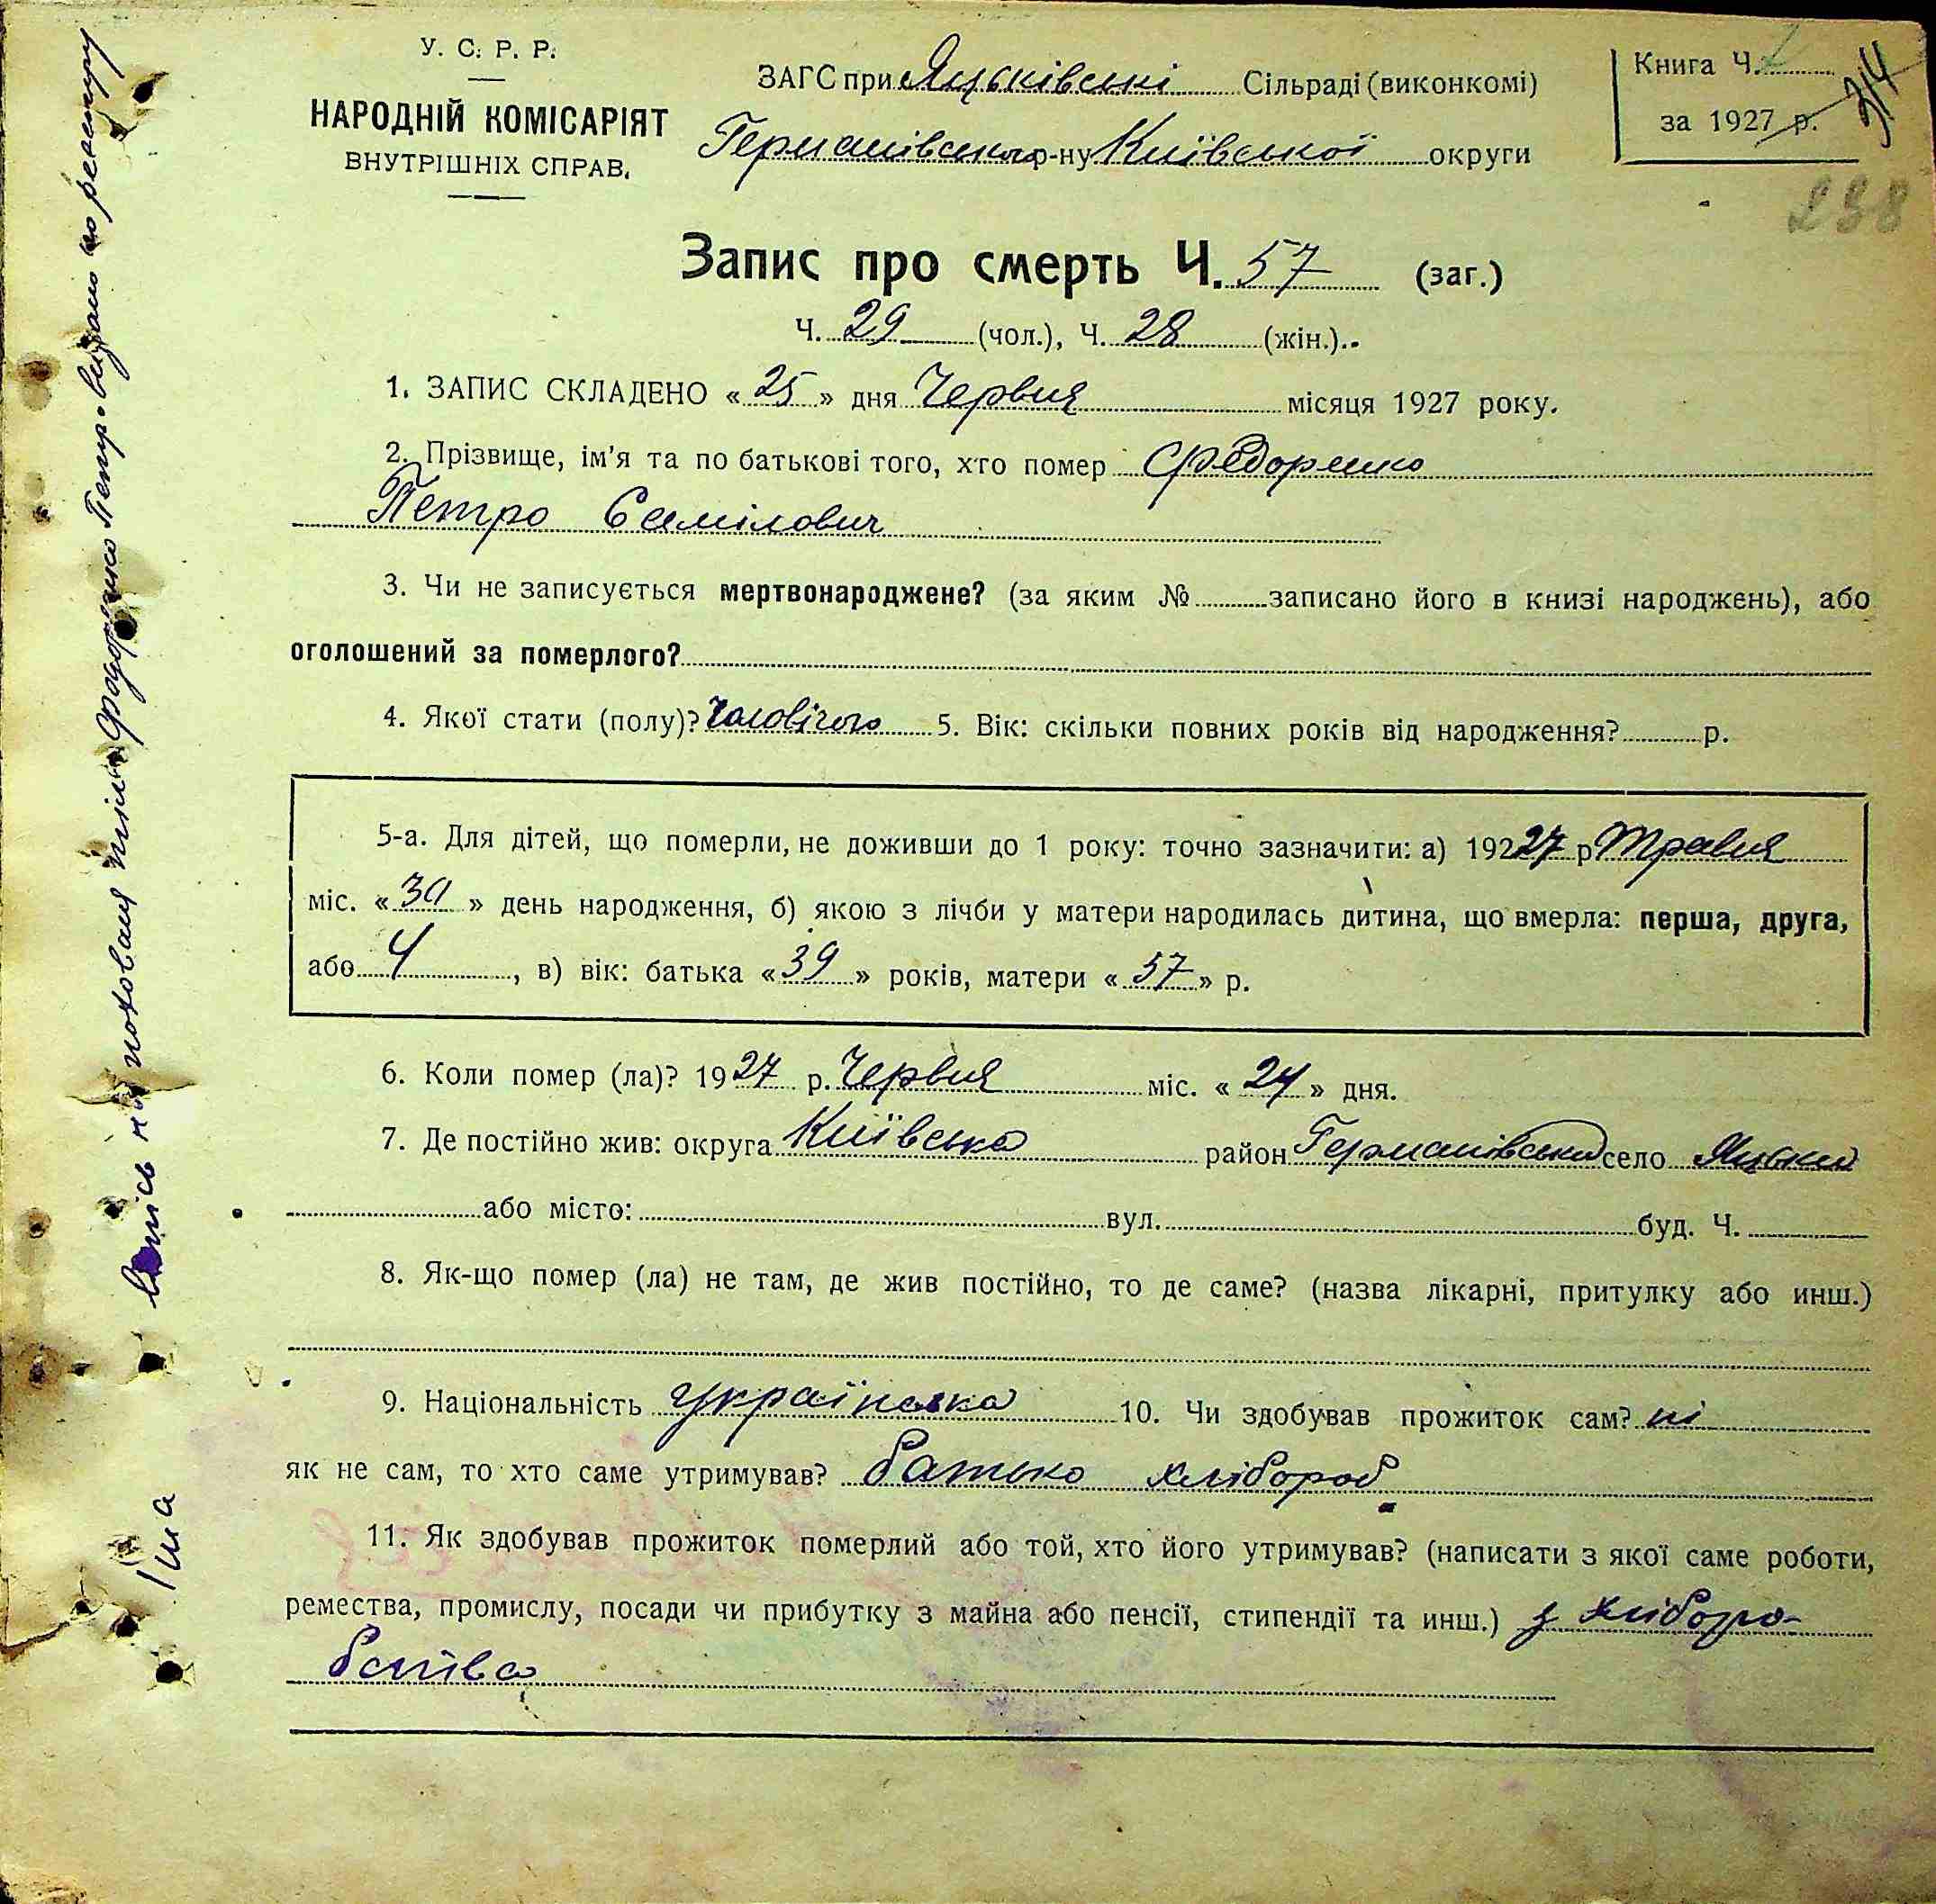 У. С. Р. Р.
НАРОДНІЙ КОМІСАРІЯТ
ВНУТРІШНІХ СПРАВ.
ЗАГС при Яцьківські Сільраді (виконкомі)
Германівського р-ну Київської округи
Книга Ч.
за 1927 р.
314
238
Запис про смерть Ч. 57 (заг.)
Ч. 29 (чол.), Ч. 28 (жін.)..
1. ЗАПИС СКЛАДЕНО « 25 » дня Червня місяця 1927 року.
2. Прізвище, ім'я та по батькові того, хто помер Федоренко
Петро Самілович
3. Чи не записується мертвонароджене? (за яким № записано його в книзі народжень), або
оголошений за померлого?
4. Якої стати (полу)? Чоловічого 5. Вік: скільки повних років від народження? р.
5-а. Для дітей, що померли, не доживши до 1 року: точно зазначити: а) 19227 р Травня
міс. « 30 » день народження, б) якою з лічби у матери народилась дитина, що вмерла: перша, друга,
або 4, в) вік: батька « 39 » років, матери « 37 » р.
6. Коли помер (ла)? 1927 р. Червня міс. « 24 » дня.
7. Де постійно жив: округа Київська район Германівський село Яцьки
або місто: вул. буд. Ч.
8. Як-що помер (ла) не там, де жив постійно, то де саме? (назва лікарні, притулку або инш.)
9. Національність Українська 10. Чи здобував прожиток сам? ні
як не сам, то хто саме утримував? батько хлібороб
11. Як здобував прожиток померлий або той, хто його утримував? (написати з якої саме роботи,
ремества, промислу, посади чи прибутку з майна або пенсії, стипендії та инш.) з хліборо-
бства
поховання тіла Федоренко Петр. видано